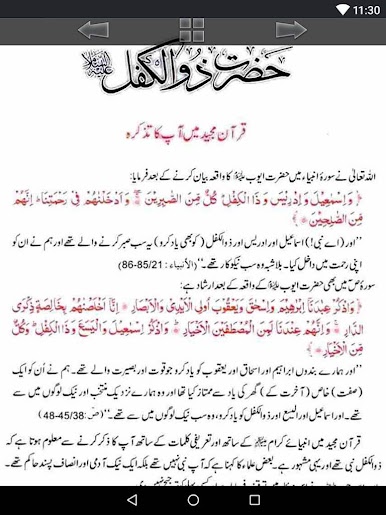 11:30
حضرت ذوالکفل علیہ السلام
قرآن مجید میں آپ کا تذکرہ
اللہ تعالیٰ نے سورۂ انبیاء میں حضرت ایوب علیہ السلام کا واقعہ بیان کرنے کے بعد فرمایا:
﴿ وَاِسْمٰعِيْلَ وَاِدْرِيْسَ وَذَا الْكِفْلِ كُلٌّ مِّنَ الصّٰبِرِيْنَ ۝ وَاَدْخَلْنٰهُمْ فِيْ رَحْمَتِنَا اِنَّهُمْ
مِّنَ الصّٰلِحِيْنَ ﴾
’’اور (اے نبی!) اسماعیل اور ادریس اور ذوالکفل (کو بھی یاد کرو) یہ سب صبر کرنے والے تھے اور ہم نے ان کو
اپنی رحمت میں داخل کیا۔ بلاشبہ وہ سب نیکوکار تھے۔‘‘ (الأنبياء: 86-85/21)
سورۂ ص میں بھی حضرت ایوب علیہ السلام کے واقعہ کے بعد ارشاد ہے:
﴿ وَاذْكُرْ عِبٰدَنَآ اِبْرٰهِيْمَ وَاِسْحٰقَ وَيَعْقُوْبَ اُولِي الْاَيْدِيْ وَالْاَبْصَارِ ۝ اِنَّآ اَخْلَصْنٰهُمْ بِخَالِصَةٍ ذِكْرَى
الدَّارِ ۝ وَاِنَّهُمْ عِنْدَنَا لَمِنَ الْمُصْطَفَيْنَ الْاَخْيَارِ ۝ وَاذْكُرْ اِسْمٰعِيْلَ وَالْيَسَعَ وَذَا الْكِفْلِ وَكُلٌّ
مِّنَ الْاَخْيَارِ ﴾
’’اور ہمارے بندوں ابراہیم اور اسحاق اور یعقوب کو یاد کرو جو قوت اور بصیرت والے تھے۔ ہم نے اُن کو ایک
(صفت) خاص (آخرت کے) گھر کی یاد سے ممتاز کیا تھا اور وہ ہمارے نزدیک منتخب اور نیک لوگوں میں سے
تھے۔ اور اسماعیل اور الیسع اور ذوالکفل کو یاد کرو، وہ سب نیک لوگوں میں سے تھے۔‘‘ (ص: 48-45/38)
قرآن مجید میں انبیائے کرام علیہم السلام کے ساتھ اور تعریفی کلمات کے ساتھ آپ کا ذکر کرنے سے معلوم ہوتا ہے کہ
ذوالکفل نبی تھے اور یہی مشہور ہے۔ بعض علماء کا کہنا ہے کہ آپ نبی نہیں تھے بلکہ ایک نیک آدمی اور انصاف پسند حاکم تھے۔